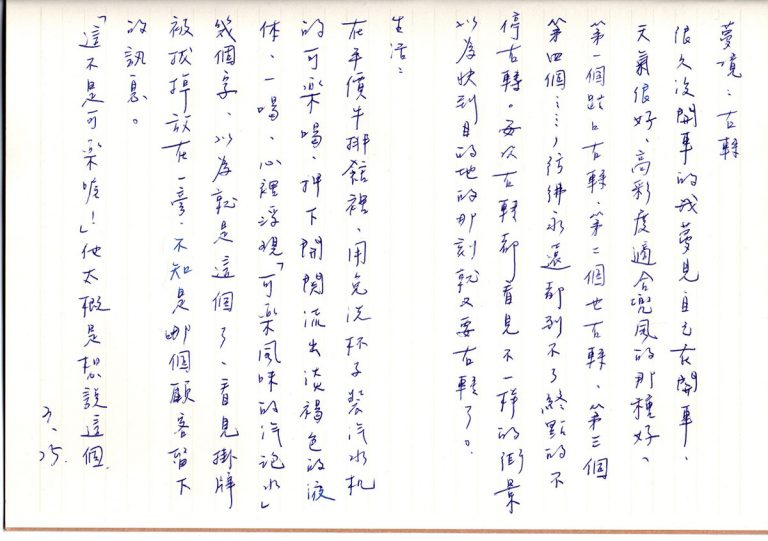 夢境：右轉
很久沒開車的我夢見自己在開車、
天氣很好、高彩度適合兜風的那種好、
第一個路口右轉、第二個也右轉、第三個
第四個……，彷彿永遠都到不了終點的不
停右轉。每次右轉都看見不一樣的街景
以為快到目的地的那刻就又要右轉了。
生活：
在平價牛排館裡、用免洗杯子裝汽水机
的可樂喝、押下開関流出淡褐色的液
体、一喝、心裡浮現「可樂風味的汽泡水」
幾個字、以為就是這個了、看見掛牌
被拔掉放在一旁、不知是哪個顧客留下
的訊息。
「這不是可樂唷！」他大概是想說這個
3、25.